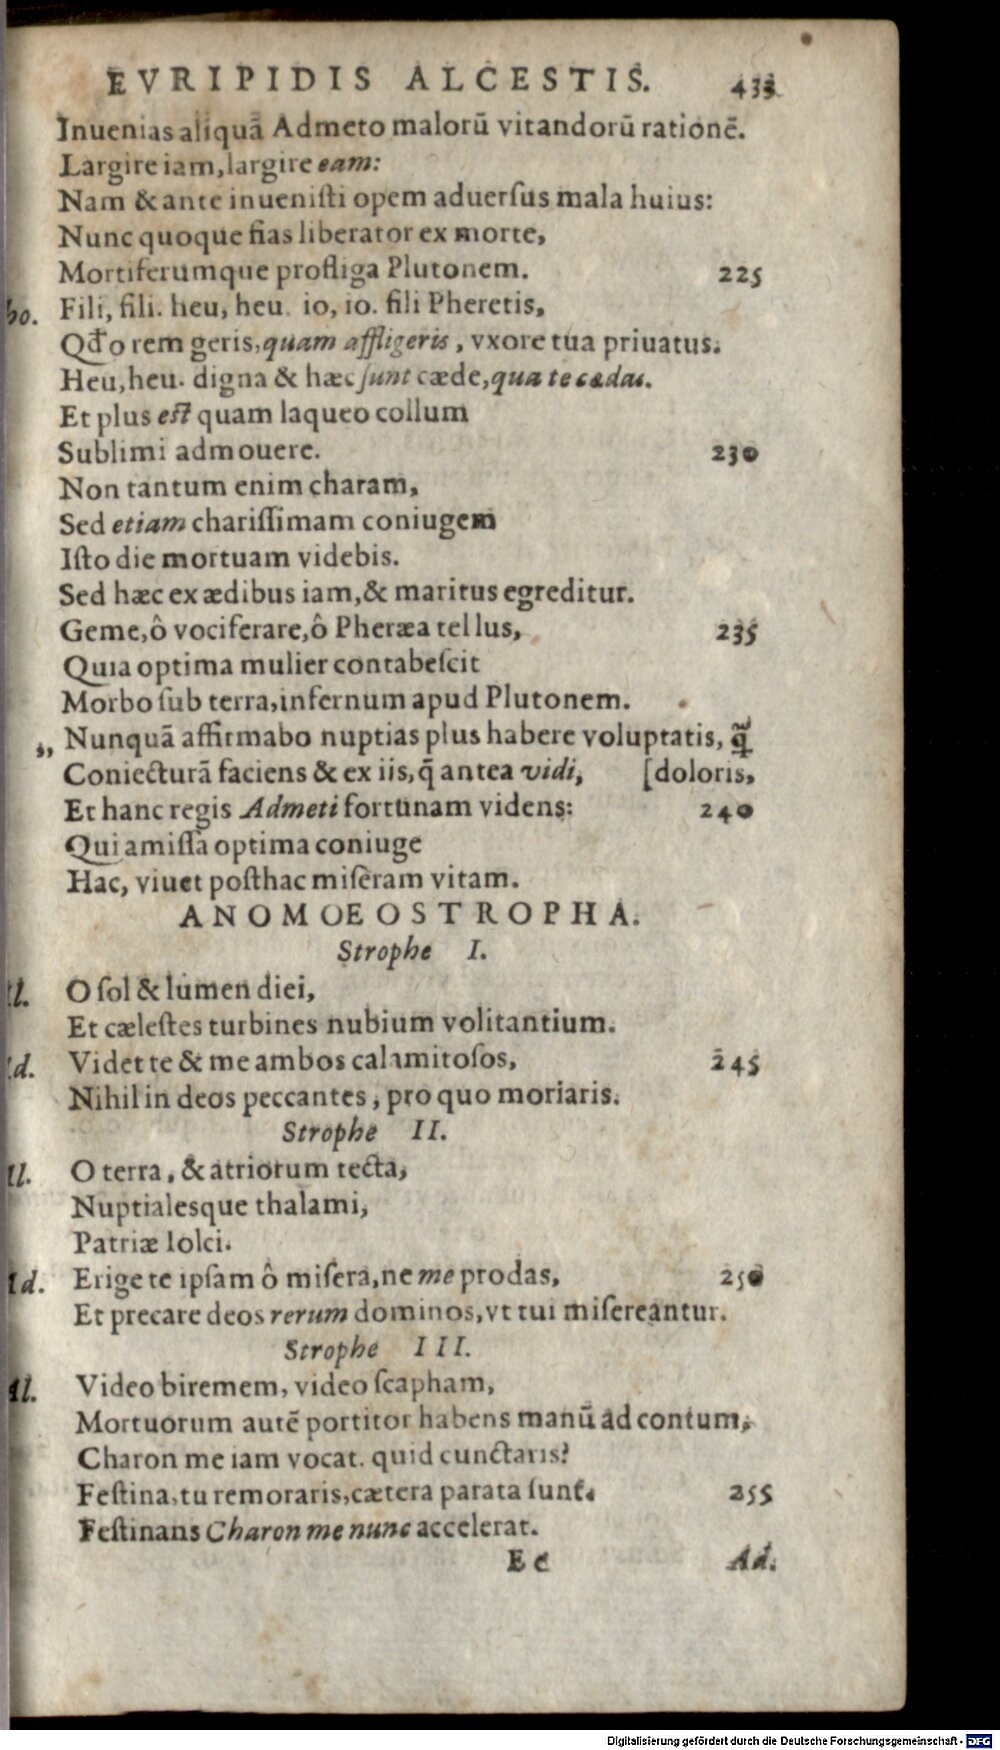 EVRIPIDIS ALCESTIS. 433
Inuenias aliquā Admeto malorū vitandorū rationē.
Largire iam, largire eam:
Nam & ante inuenisti opem aduersus mala huius:
Nunc quoque fias liberator ex morte,
Mortiferumque profliga Plutonem. 225
ho. Fili, fili. heu, heu. io, io. fili Pheretis,
Qđo rem geris, quam affligeris, vxore tua priuatus.
Heu, heu. digna & hæc sunt cæde, qua te cædas.
Et plus est quam laqueo collum
Sublimi admouere. 230
Non tantum enim charam,
Sed etiam charissimam coniugem
Isto die mortuam videbis.
Sed hæc ex ædibus iam, & maritus egreditur.
Geme, ô vociferare, ô Pheræa tellus, 235
Quia optima mulier contabescit
Morbo sub terra, infernum apud Plutonem.
„ Nunquā affirmabo nuptias plus habere voluptatis, q̃
Coniecturā faciens & ex iis, q̄ antea vidi, [doloris,
Et hanc regis Admeti fortunam videns: 240
Qui amissa optima coniuge
Hac, viuet posthac miseram vitam.
ANOMOEOSTROPHA.
Strophe I.
l. O sol & lumen diei,
Et cælestes turbines nubium volitantium.
d. Videt te & me ambos calamitosos, 245
Nihil in deos peccantes, pro quo moriaris.
Strophe II.
l. O terra, & atriorum tecta,
Nuptialesque thalami,
Patriæ Iolci.
Ad. Erige te ipsam ô misera, ne me prodas, 250
Et precare deos rerum dominos, vt tui misereantur.
Strophe III.
Al. Video biremem, video scapham,
Mortuorum autē portitor habens manū ad contum,
Charon me iam vocat. quid cunctaris?
Festina, tu remoraris, cætera parata sunt. 255
Festinans Charon me nunc accelerat.
E e Ad.
Digitalisierung gefördert durch die Deutsche Forschungsgemeinschaft - DFG